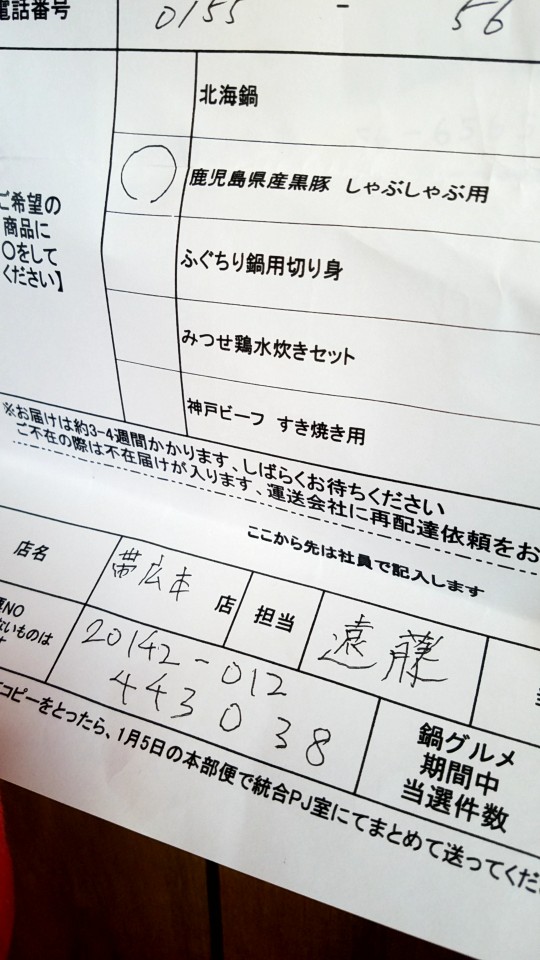 電話番号 0155 - 56
北海鍋
○ 鹿児島県産黒豚 しゃぶしゃぶ用
ご希望の
商品に
○をして
ください】
ふぐちり鍋用切り身
みつせ鶏水炊きセット
神戸ビーフ すき焼き用
※お届けは約3-4週間かかります、しばらくお待ちください
ご不在の際は不在届けが入ります、運送会社に再配達依頼をお
ここから先は社員で記入します
店名 帯広本 店 担当 遠藤
NO
ないものは
20142-012
443038
鍋グルメ
期間中
当選件数
コピーをとったら、1月5日の本部便で統合PJ室にてまとめて送ってくだ